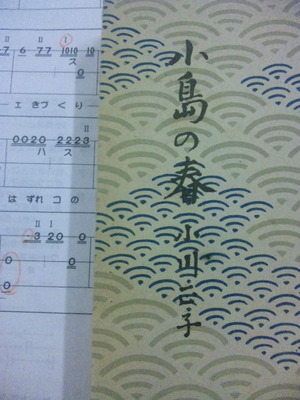 小島の春
II I
7 6 77 1010 10
ス
0
エ きづくり
II
0020 2223
ハ ス
はずれ コ の
II I
3 20 0
0 0
0